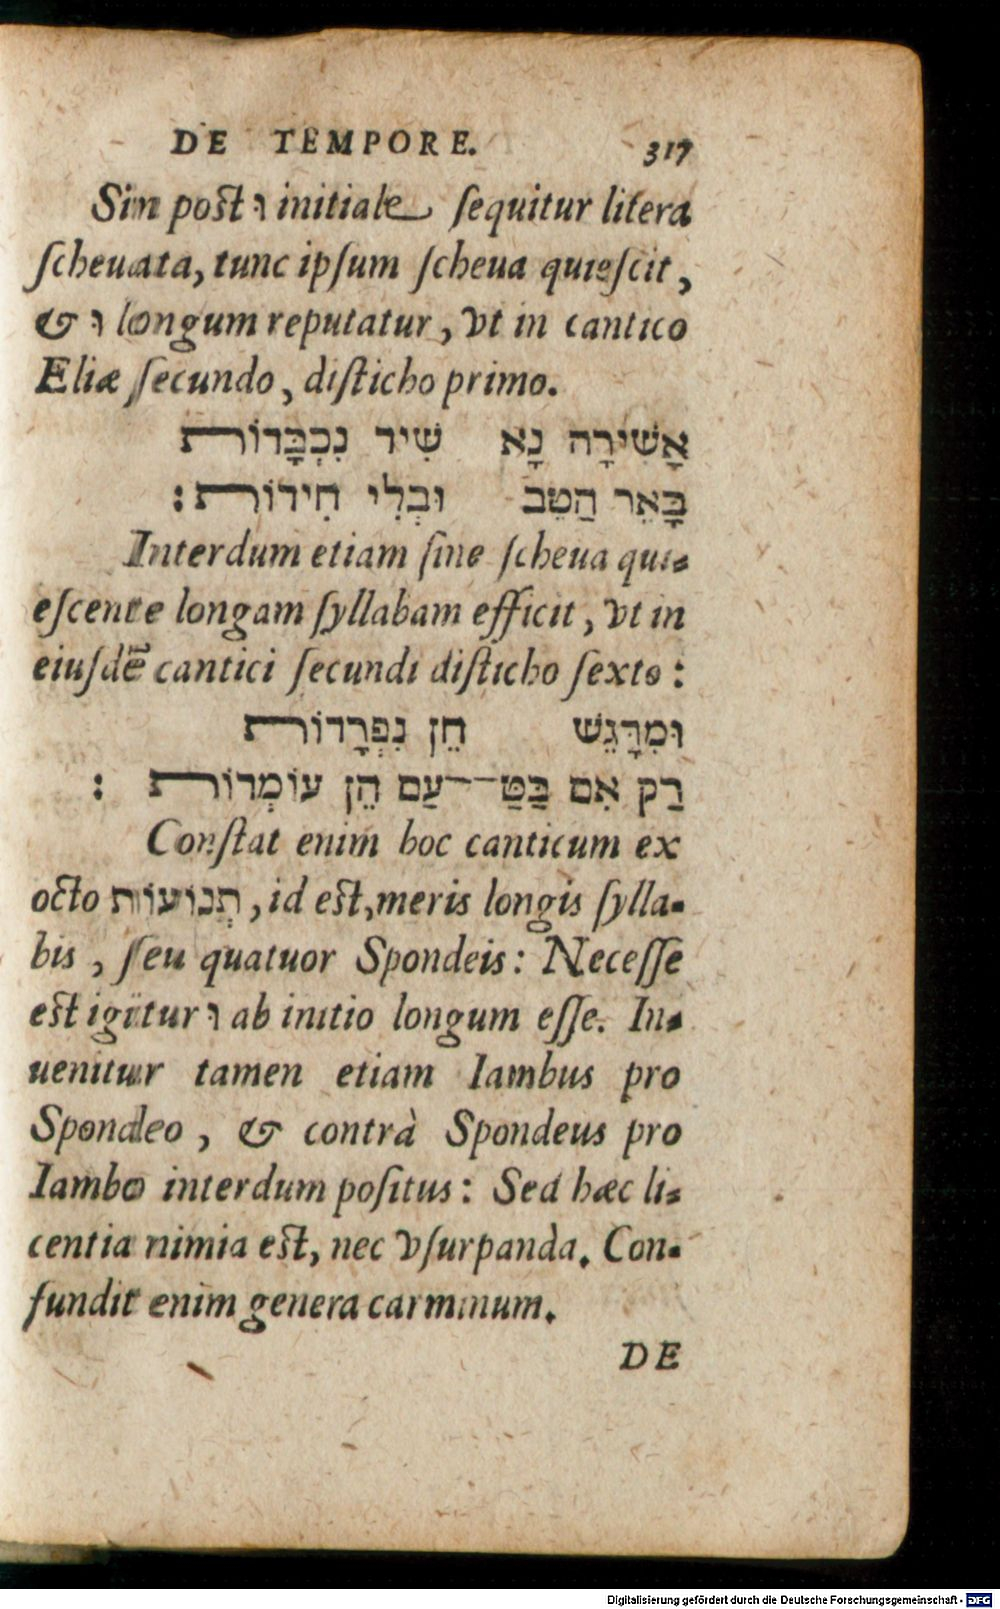 DE TEMPORE. 317
Sin post ו initiale sequitur litera
scheuata, tunc ipsum scheua quiescit,
& ו longum reputatur, vt in cantico
Eliæ secundo, disticho primo.
אָשִׁירָה נָא שִׁיר נִכְבָּדוֹת
בָּאֵר הַטֵב וּבְלִי חִידוֹת:
Interdum etiam sine scheua qui-
escente longam syllabam efficit, vt in
eiusdē cantici secundi disticho sexto:
וּמִרָּגֵשׁ חֵן נִפְרָדוֹת
רַק אִם בַּטַּ--עַם הֵן עוֹמְדוֹת :
Constat enim hoc canticum ex
octo תְנוֹעוֹת, id est, meris longis sylla-
bis, seu quatuor Spondeis: Necesse
est igitur ו ab initio longum esse. In-
uenitur tamen etiam Iambus pro
Spondeo, & contrà Spondeus pro
Iambo interdum positus: Sed hæc li-
centia nimia est, nec vsurpanda. Con-
fundit enim genera carminum.
DE
Digitalisierung gefördert durch die Deutsche Forschungsgemeinschaft - DFG